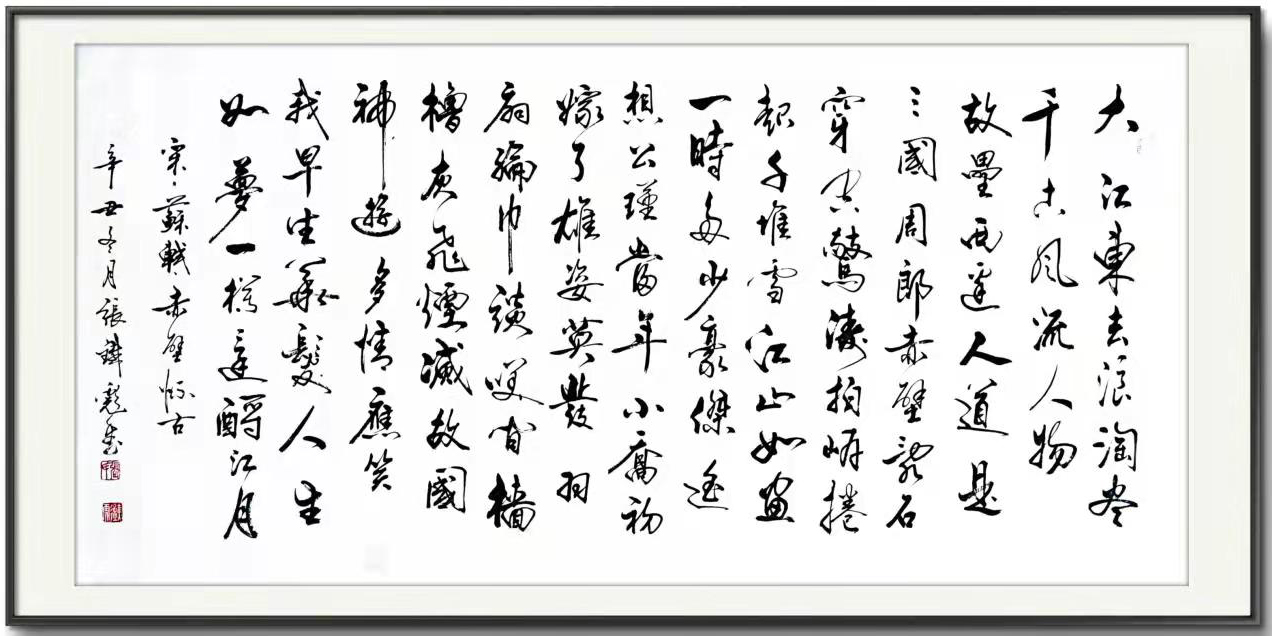 大江東去浪淘尽
千古風流人物
故壘西邊人道是
三國周郎赤壁亂石
穿空驚濤拍岸捲
起千堆雪江山如畫
一時多少豪傑遙
想公瑾當年小喬初
嫁了雄姿英發羽
扇綸巾談笑間檣
櫓灰飛煙滅故國
神遊多情應笑
我早生華髮人生
如夢一樽還酹江月
宋蘇軾赤壁懷古
辛丑冬月張彪書